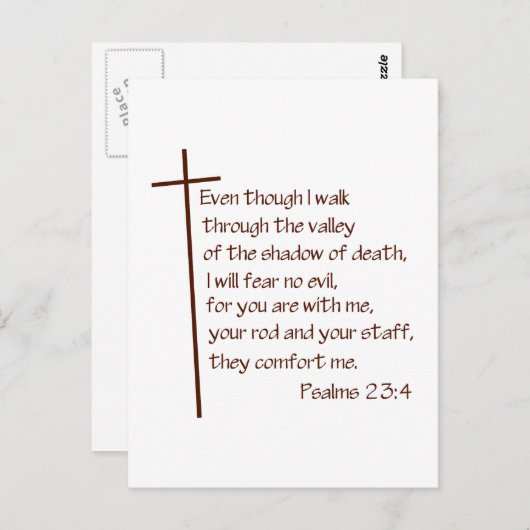 Even though I walk
through the valley
of the shadow of death,
I will fear no evil,
for you are with me,
your rod and your staff,
they comfort me.
Psalms 23:4
Place